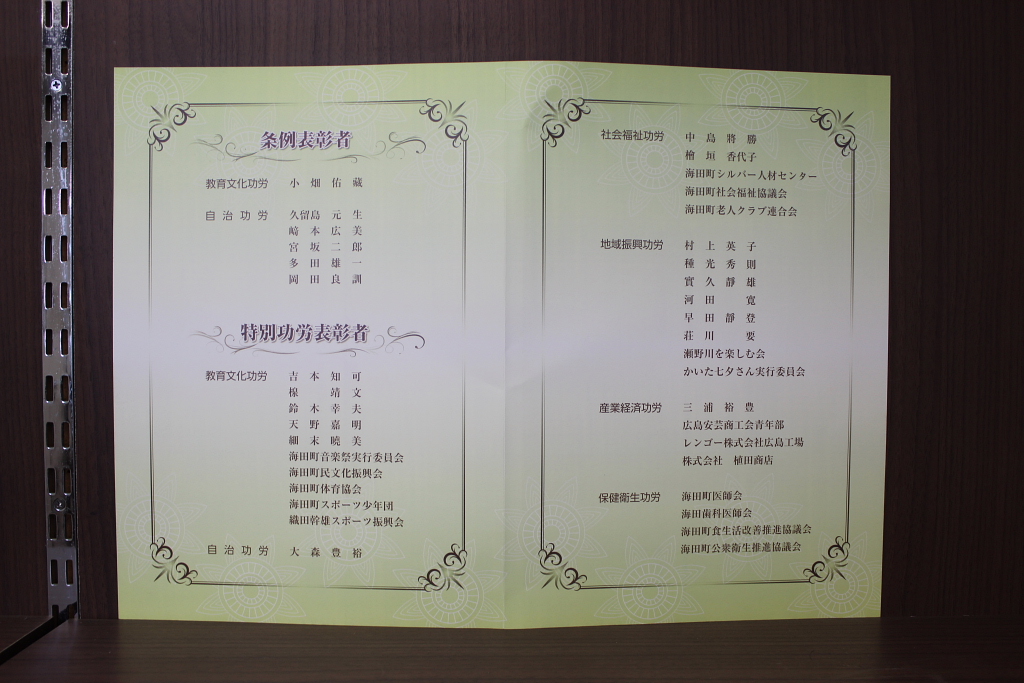 条例表彰者
教育文化功労 小畑佑蔵
自治功労 久留島元生
﨑本広美
宮坂二郎
多田雄一
岡田良訓
特別功労表彰者
教育文化功労 吉本知可
楾靖文
鈴木幸夫
天野嘉明
細末暁美
海田町音楽祭実行委員会
海田町民文化振興会
海田町体育協会
海田町スポーツ少年団
織田幹雄スポーツ振興会
自治功労 大森豊裕
社会福祉功労 中島將勝
檜垣香代子
海田町シルバー人材センター
海田町社会福祉協議会
海田町老人クラブ連合会
地域振興功労 村上英子
種光秀則
實久靜雄
河田寛
早田靜登
荘川要
瀬野川を楽しむ会
かいた七夕さん実行委員会
産業経済功労 三浦裕豊
広島安芸商工会青年部
レンゴー株式会社広島工場
株式会社 植田商店
保健衛生功労 海田町医師会
海田歯科医師会
海田町食生活改善推進協議会
海田町公衆衛生推進協議会